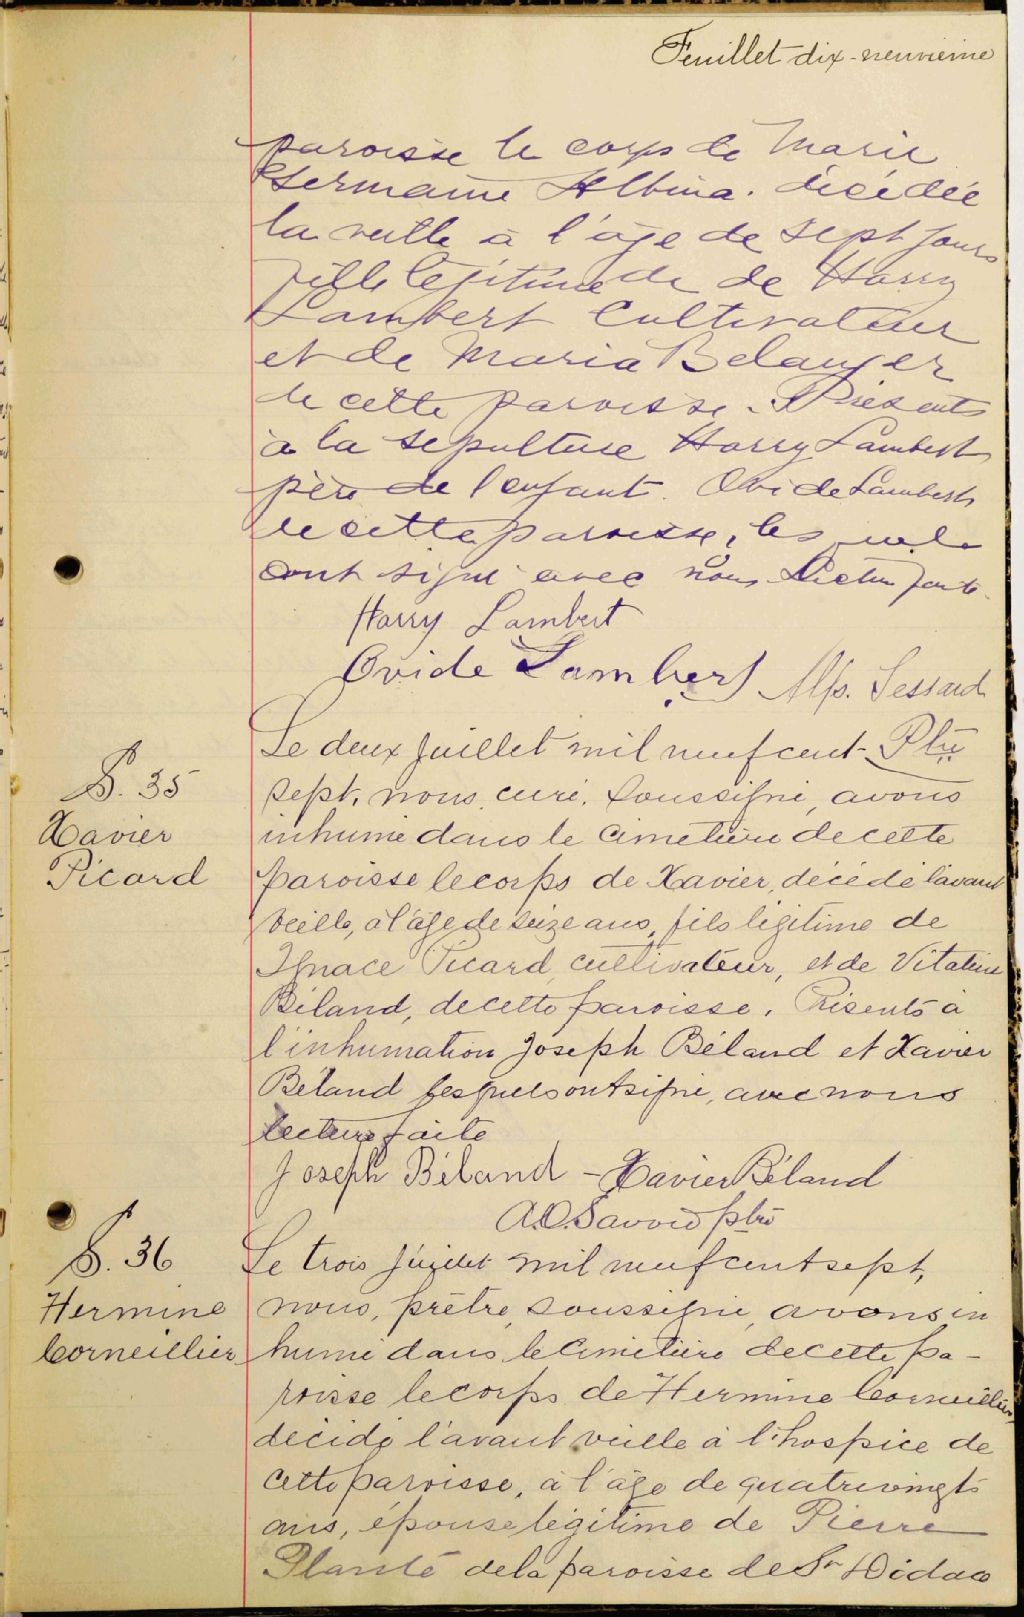 Feuillet dix-neuvième
paroisse le corps de Marie
Germaine Albina. décédée
la veille à l'âge de sept jours
fille légitime de de Harry
Lambert Cultivateur
et de Maria Belanger
de cette paroisse. Présents
à la sépulture Harry Lambert
père de l'enfant. Ovide Lambert
de cette paroisse, lesquels
ont signé avec nous. Lecture faite.
Harry Lambert
Ovide Lambert Alp. Lessard
Ptre
S. 35
Xavier
Picard
Le deux Juillet mil neuf cent-
sept, nous, curé, soussigné, avons
inhumé dans le cimetière de cette
paroisse le corps de Xavier, décédé l'avant
veille, à l'âge de seize ans, fils légitime de
Ignace Picard, cultivateur, et de Vitaline
Béland, de cette paroisse. Présents à
l'inhumation Joseph Béland et Xavier
Béland lesquels ont signé, avec nous
lecture faite
Joseph Béland - Xavier Béland
A.O. Savoie ptre
S. 36
Hermine
Corneillier
Le trois Juillet mil neuf cent sept,
nous, prêtre, soussigné, avons in
humé dans le cimetière de cette pa-
roisse le corps de Hermine Corneillier,
décédé l'avant veille à l'hospice de
cette paroisse, à l'âge de quatrevingts
ans, épouse légitime de Pierre
Planté de la paroisse de St Didace